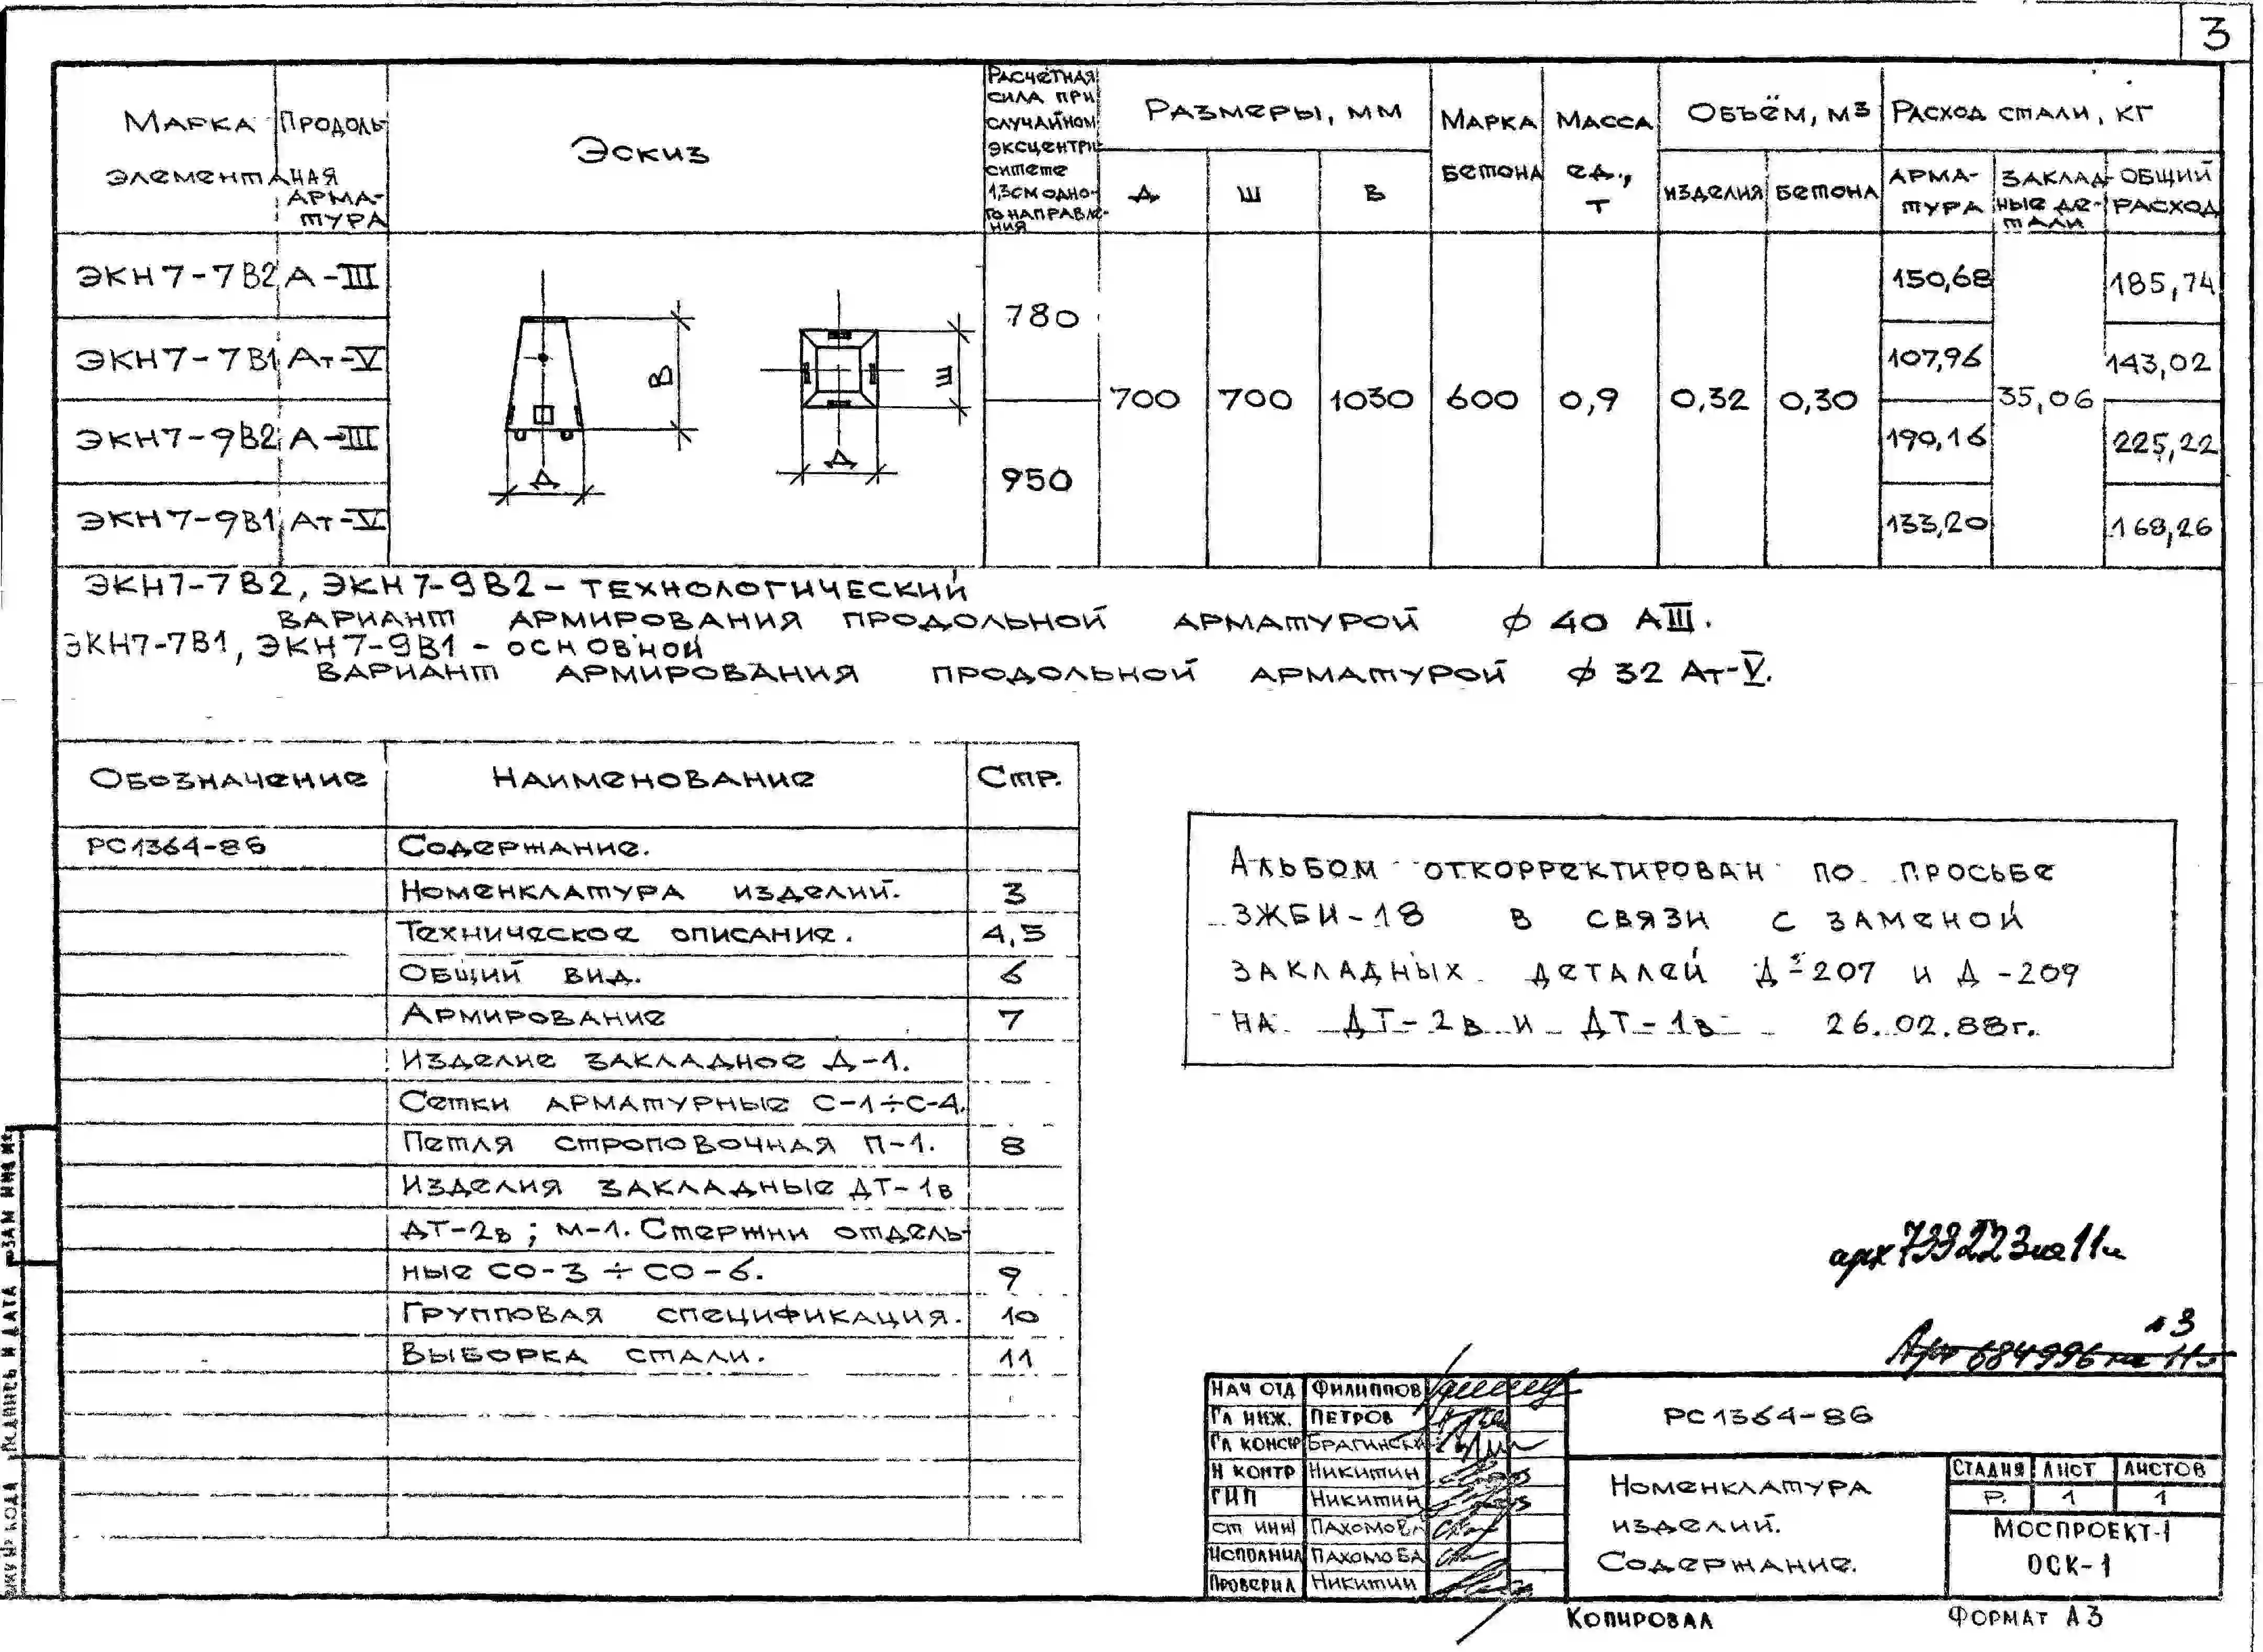 3
Марка элемента
Продольная арматура
Эскиз
Расчётная сила при случайном эксцентриситете 1,3см одного направления
Размеры, мм
Д
Ш
В
Марка бетона
Масса ед., т
Объём, м3
изделия
бетона
Расход стали, кг
Арматура
Закладные детали
Общий расход
ЭКН7-7В2 А-III 780 700 700 1030 600 0,9 0,32 0,30 150,68 35,06 185,74
ЭКН7-7В1 Ат-V 107,96 143,02
ЭКН7-9В2 А-III 950 190,16 225,22
ЭКН7-9В1 Ат-V 133,20 168,26
В
Д
Ш
Д
ЭКН7-7В2, ЭКН7-9В2 – технологический
вариант армирования продольной арматурой ϕ 40 АIII.
ЭКН7-7В1, ЭКН7-9В1 - основной
вариант армирования продольной арматурой ϕ 32 Ат-V.
Обозначение Наименование Стр.
РС1364-86 Содержание.
Номенклатура изделий. 3
Техническое описание. 4,5
Общий вид. 6
Армирование 7
Изделие закладное Д-1.
Сетки арматурные С-1÷С-4.
Петля строповочная П-1. 8
Изделия закладные ДТ-1в
ДТ-2в; М-1. Стержни отдель-
ные СО-3 ÷ СО-6. 9
Групповая спецификация. 10
Выборка стали. 11
Альбом откорректирован по просьбе
ЗЖБИ-18 в связи с заменой
закладных деталей Д-207 и Д-209
на ДТ-2в и ДТ-1в 26.02.88г.
арх 733223 на 11л
л3
Арх 684996 на 11л
Нач отд Филиппов
Гл инж. Петров
Гл констр Брагински
Н контр Никитин
ГИП Никитин
ст инж Пахомова
Исполнил Пахомова
Проверил Никитин
РС1364-86
Номенклатура
изделий.
Содержание.
Стадия Лист Листов
Р. 1 1
МОСПРОЕКТ-1
ОСК-1
Копировал
Формат А3
Зам инв №
Подпись и дата